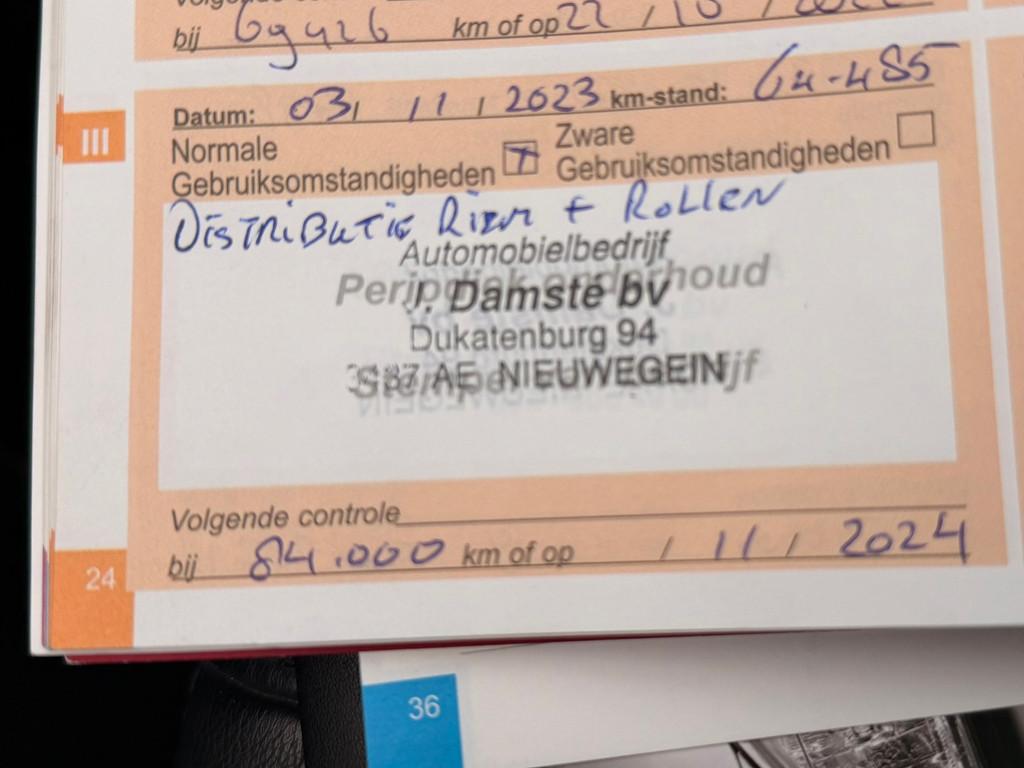 bij 69426 km of op 22 / 10 /
Datum: 03 / 11 / 2023 km-stand: 64-485
III
Normale Gebruiksomstandigheden
Zware Gebruiksomstandigheden
DISTRIBUTIE RIEM + ROLLEN
Automobielbedrijf
Periodiek onderhoud
J. Damsté bv
Dukatenburg 94
AE NIEUWEGEIN
Volgende controle
bij 84.000 km of op / 11 / 2024
24
36